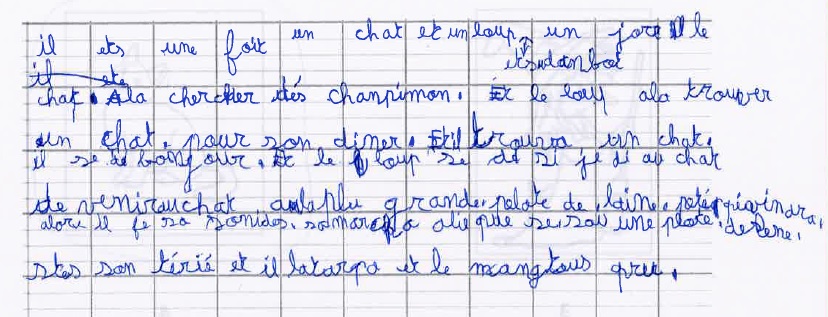 il ets une foit un chat et un loup un jore il le
etsudanboi
il ete
chat. Ala chercher dés chanpimon. Et le loup ala trouver
un chat. pour son diner. Et il trouva un chat.
il se di bonjour. Et le loup se di si je di au chat
de venir au chat a la plu grande pelote de laine. peté qui vindra.
alore il fe sa
stes son térié et il latarpa et le mangtous gru.